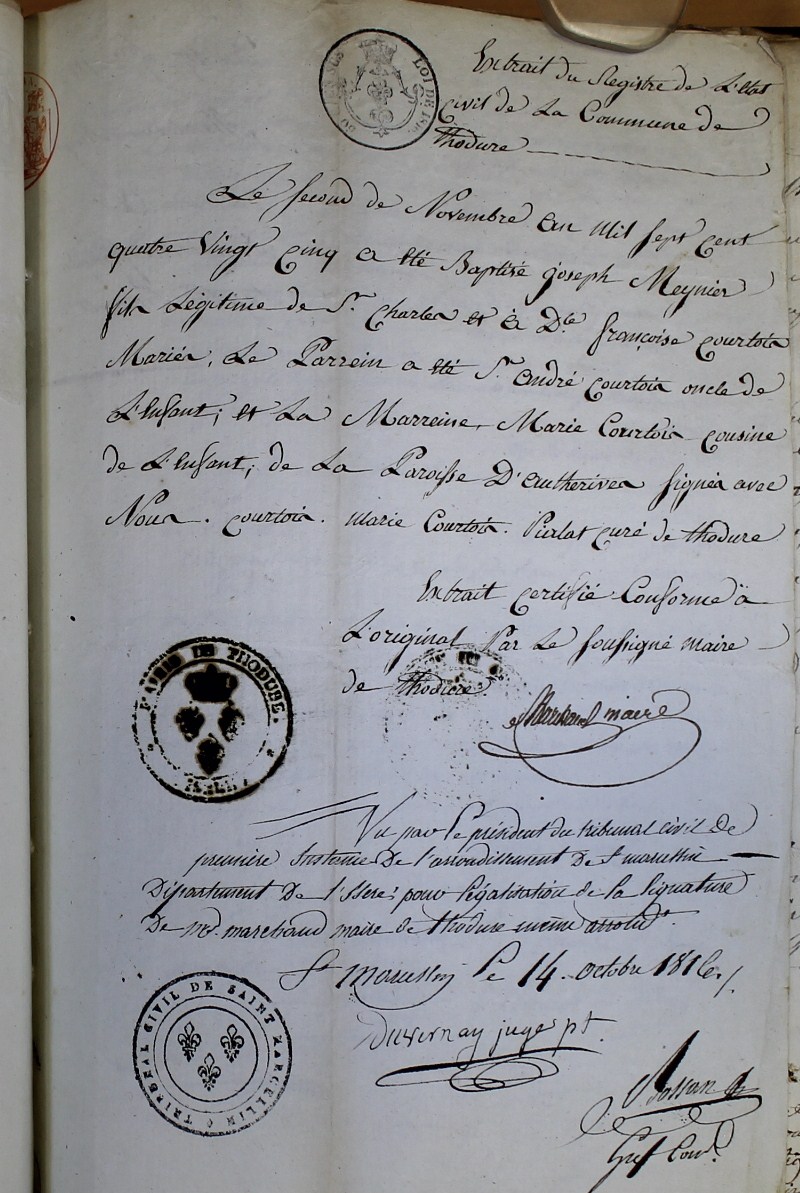 Extrait du Registre de L'état
Civil de La Commune de
thodure
LOI DE 1816
Le second de Novembre an mil sept cent
quatre vingt cinq a été Baptisé joseph Meynier
fils Légitime de Sr. Charles et à Dlle françoise courtois
Mariés, Le Parrein a été Sr. andré courtois oncle de
L'enfant; et La Marreine, Marie Courtois cousine
de L'enfant; de La Paroisse D'autherives signés avec
Nous. courtois. marie Courtois. Pialat curé de thodure
Extrait certifié Conforme à
L'original Par Le soussigné maire
de thodure.
Marchand maire
MAIRIE DE THODURE.
Vu par le président du tribunal civil De
première instance De l'arrondissement de St marcellin
Département De l'issere; pour légalisation de la signature
De mr. marchand maire de thodure meme arrondt.
St marcellin le 14. octobre 1816./.
TRIBUNAL CIVIL DE SAINT MARCELLIN
Duvernay juge pt.